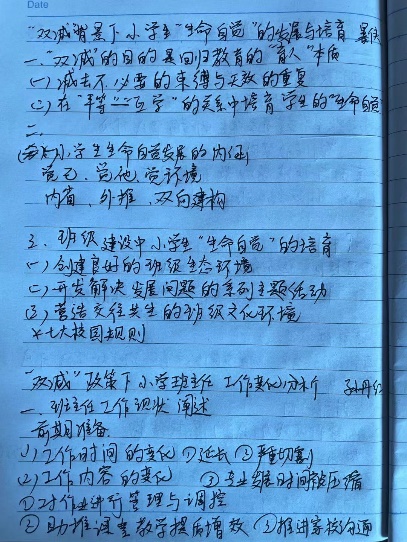 Date
"双减"背景下小学生"生命自觉"的发展与培育
一、"双减"的目的是回归教育的"育人"本质
(一)减去不必要的束缚与无效的重复
(二)在"平等" "互学"的关系中培育学生的"生命自觉
二、
小学生生命自觉发展的内涵
觉己、觉他、觉环境
内省、外推、双向建构
三、班级建设中小学生"生命自觉"的培育
(一)创建良好的班级生态环境
(二)开发解决发展问题的系列主题活动
(三)营造交往共生的班级文化环境
*七大校园规则
"双减"政策下小学班主任工作变化分析 孙丹
一、班主任工作现状阐述
前期准备
(1)工作时间的变化 ①延长 ②严重切割
(2)工作内容的变化 ③专业发展时间被压缩
①对作业进行管理与调控
②助推课堂教学提质增效 ③推进家校沟通